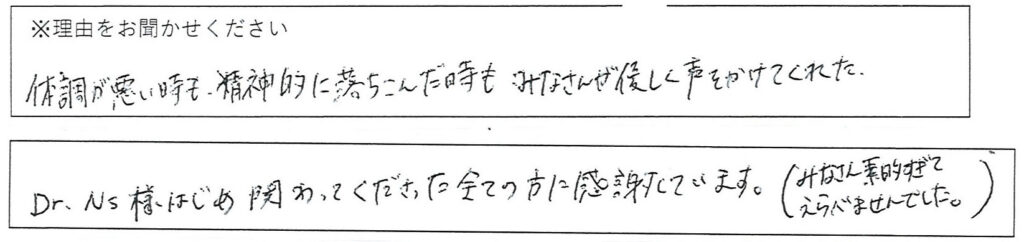 ※理由をお聞かせください
体調が悪い時も、精神的に落ちこんだ時も みなさんが優しく声をかけてくれた。
Dr、Ns様はじめ関わってくださった全ての方に感謝しています。(みなさん素的すぎて
えらべませんでした。)